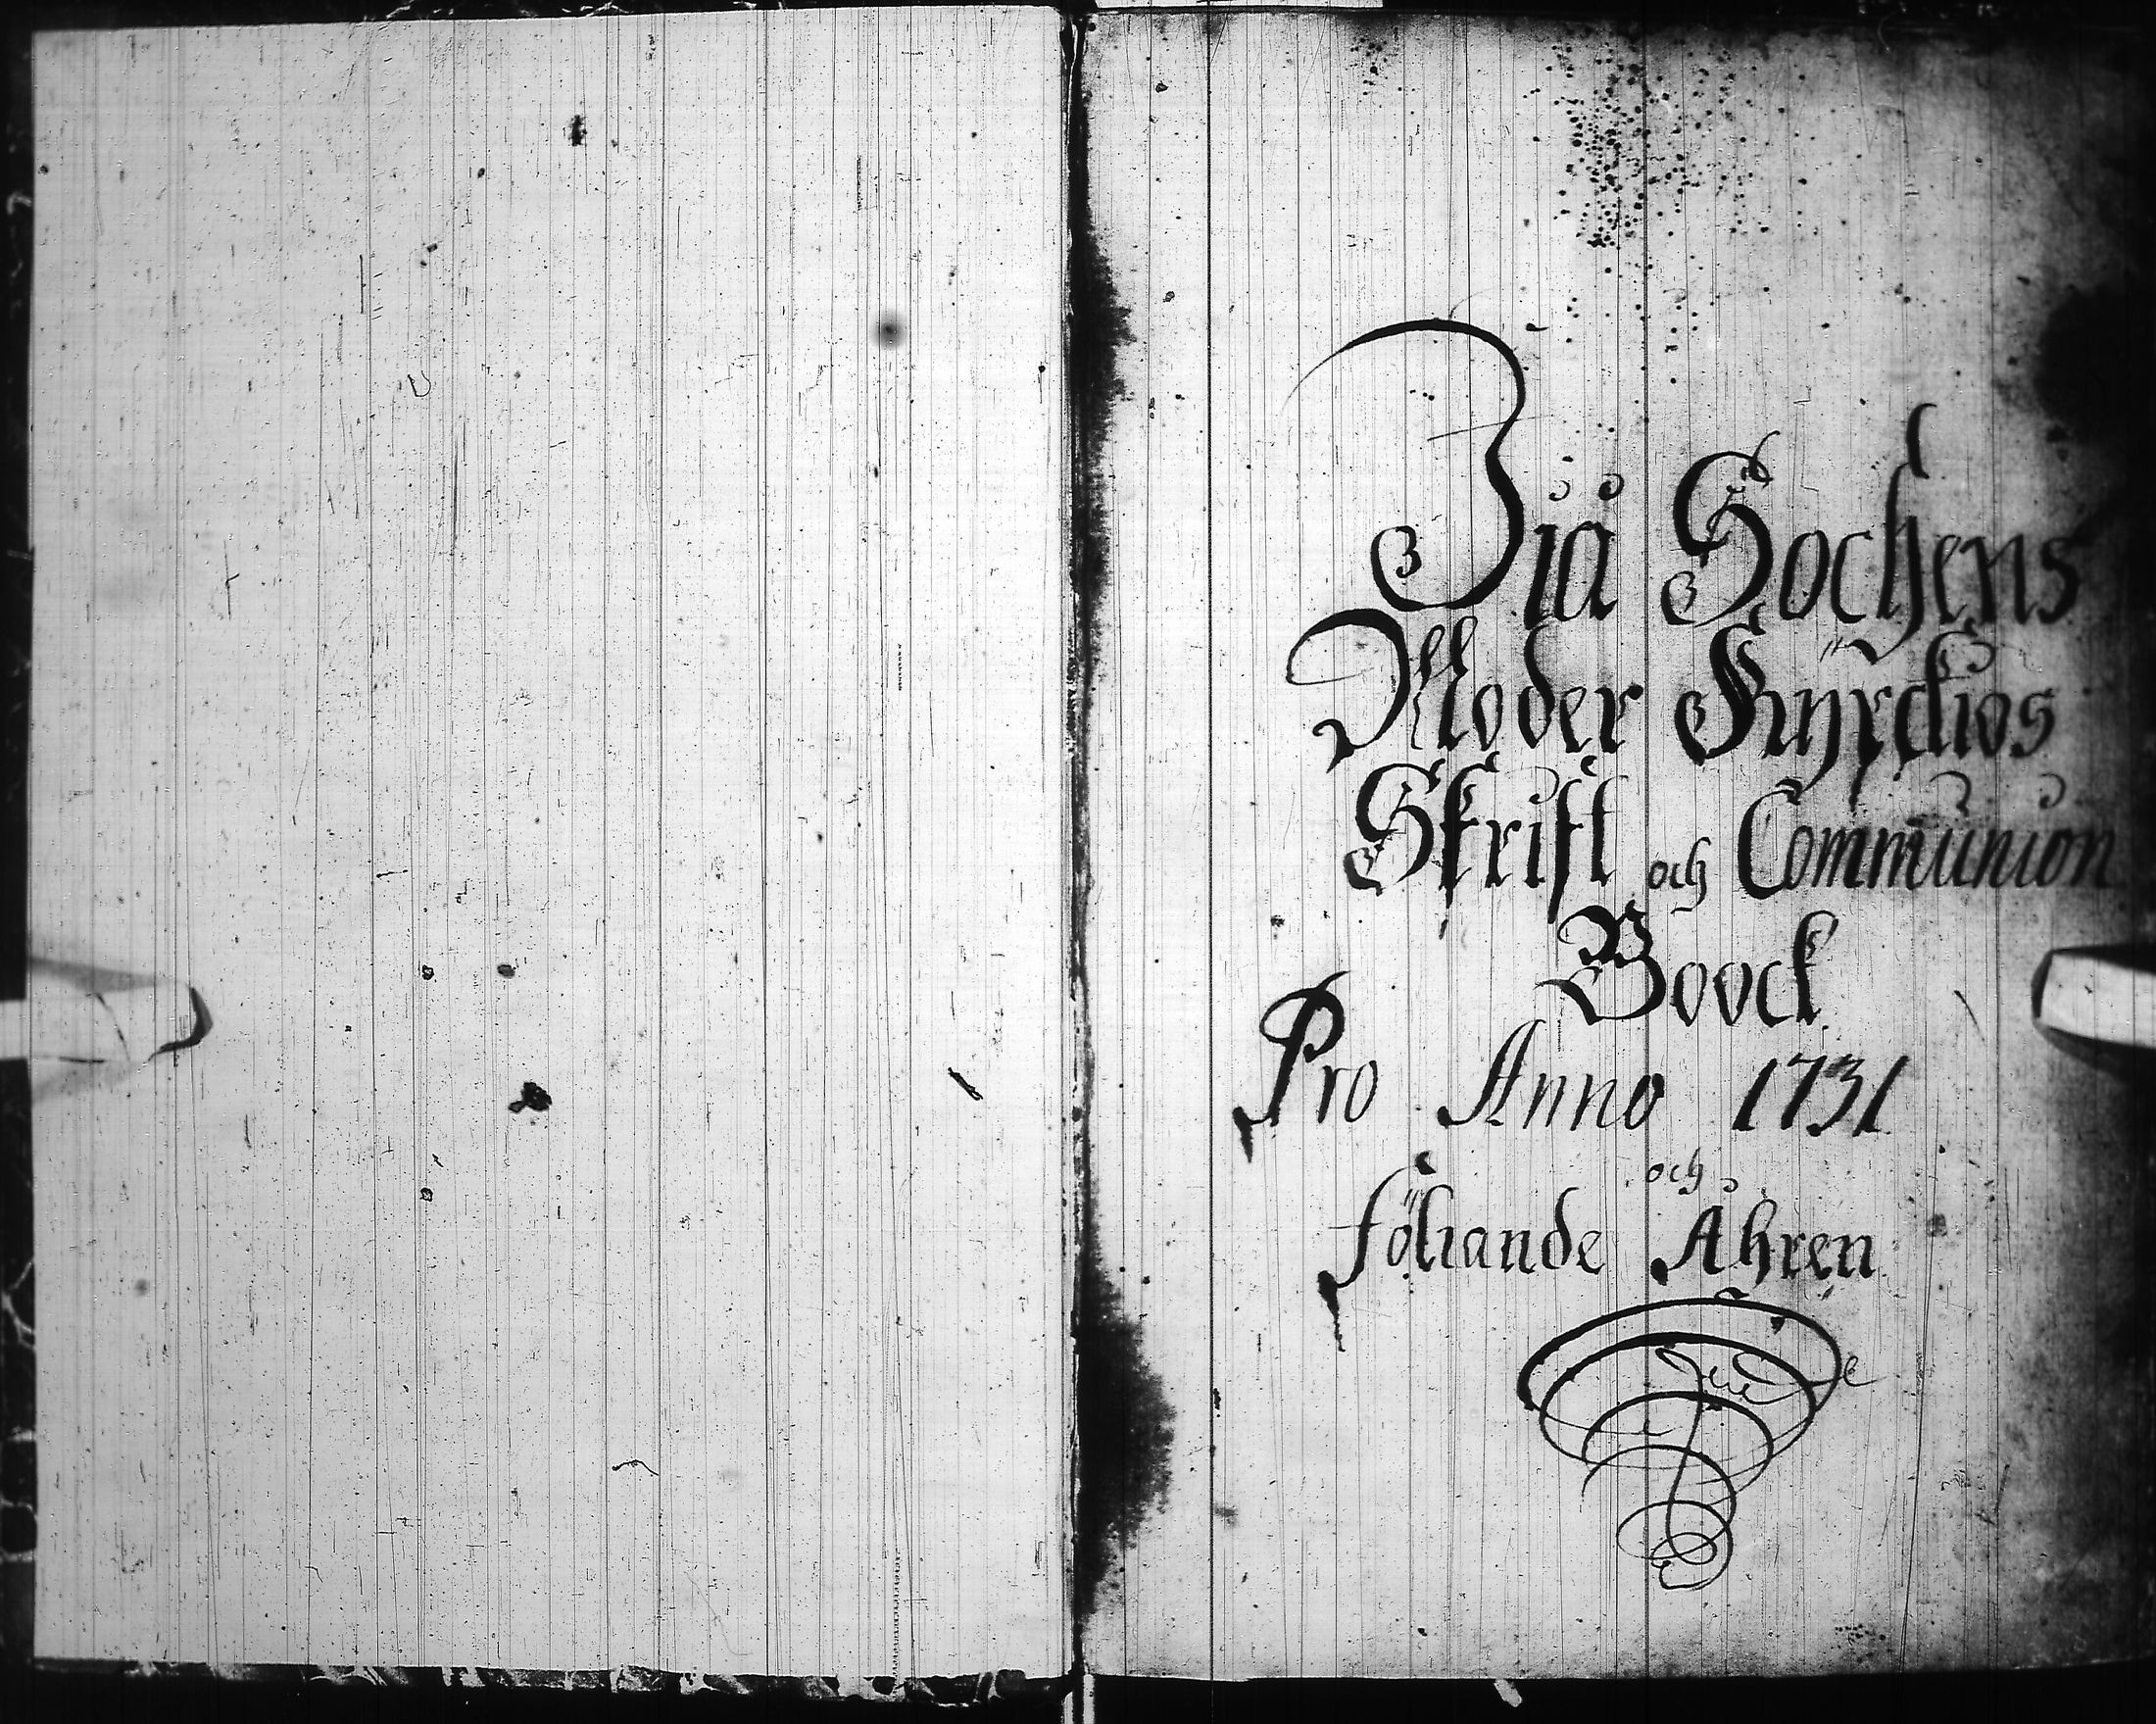 Jia Sochens
Moder Kyrckios
Skrift och Communion
Boock
Pro Anno 1731
och
föliande Åhren